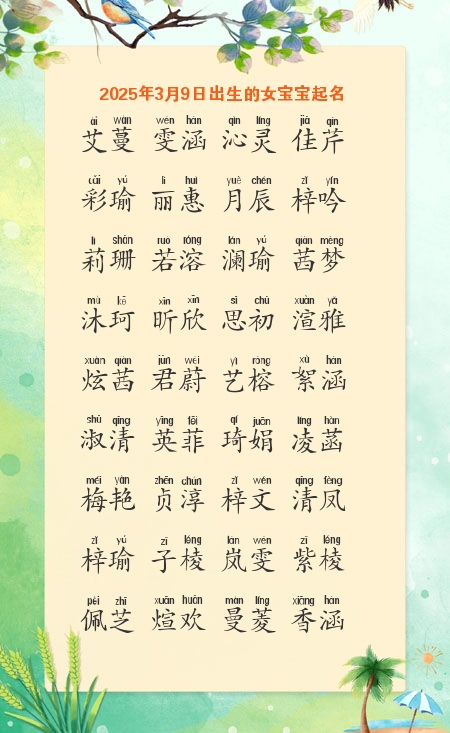 2025年3月9日出生的女宝宝起名
ài wàn wén hán qìn líng jiā qín
艾蔓 雯涵 沁灵 佳芹
cǎi yú lì huì yuè chén zǐ yín
彩瑜 丽惠 月辰 梓吟
lì shān ruò róng lán yú qiàn mèng
莉珊 若溶 澜瑜 茜梦
mù kē xīn xīn sī chū xuàn yǎ
沐珂 昕欣 思初 渲雅
xuàn qiàn jūn wèi yì róng xù hán
炫茜 君蔚 艺榕 絮涵
shū qīng yīng fēi qí juān líng hàn
淑清 英菲 琦娟 凌菡
méi yàn zhēn chún zǐ wén qīng fèng
梅艳 贞淳 梓文 清凤
zǐ yú zi léng lán wén zǐ léng
梓瑜 子棱 岚雯 紫棱
pèi zhī xuān huān màn líng xiāng hán
佩芝 煊欢 曼菱 香涵